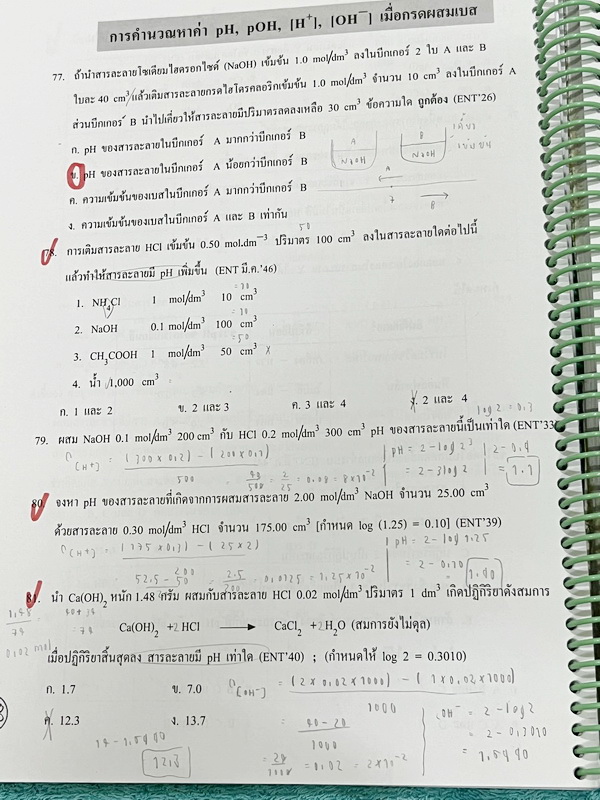 การคำนวณหาค่า pH, pOH, [H⁺], [OH⁻] เมื่อกรดผสมเบส
77. ถ้านำสารละลายโซเดียมไฮดรอกไซด์ (NaOH) เข้มข้น 1.0 mol/dm³ ลงในบีกเกอร์ 2 ใบ A และ B
ใบละ 40 cm³ แล้วเติมสารละลายกรดไฮโดรคลอริกเข้มข้น 1.0 mol/dm³ จำนวน 10 cm³ ลงในบีกเกอร์ A
ส่วนบีกเกอร์ B นำไปเคี่ยวให้สารละลายมีปริมาตรลดลงเหลือ 30 cm³ ข้อความใด ถูกต้อง (ENT'26)
ก. pH ของสารละลายในบีกเกอร์ A มากกว่าบีกเกอร์ B
ข. pH ของสารละลายในบีกเกอร์ A น้อยกว่าบีกเกอร์ B
ค. ความเข้มข้นของเบสในบีกเกอร์ A มากกว่าบีกเกอร์ B
ง. ความเข้มข้นของเบสในบีกเกอร์ A และ B เท่ากัน
A B
NaOH NaOH
A
7 B
50
78. การเติมสารละลาย HCl เข้มข้น 0.50 mol.dm⁻³ ปริมาตร 100 cm³ ลงในสารละลายใดต่อไปนี้
แล้วทำให้สารละลายมี pH เพิ่มขึ้น (ENT มี.ค.'46)
1. NH₄Cl 1 mol/dm³ 10 cm³ = 10
2. NaOH 0.1 mol/dm³ 100 cm³ = 10
3. CH₃COOH 1 mol/dm³ 50 cm³ = 50 x
4. น้ำ 1,000 cm³
ก. 1 และ 2 ข. 2 และ 3 ค. 3 และ 4 ง. 2 และ 4
log 2 = 0.3
79. ผสม NaOH 0.1 mol/dm³ 200 cm³ กับ HCl 0.2 mol/dm³ 300 cm³ pH ของสารละลายนี้เป็นเท่าใด (ENT'33)
[H+] = (300 x 0.2) - (200 x 0.1) pH = 2 - log 2³ 2 - 0.9
500 40/500 = 2/25 = 0.08 = 8 x 10⁻² = 2 - 3 log 2 = 1.1
80. จงหา pH ของสารละลายที่เกิดจากการผสมสารละลาย 2.00 mol/dm³ NaOH จำนวน 25.00 cm³
ด้วยสารละลาย 0.30 mol/dm³ HCl จำนวน 175.00 cm³ [กำหนด log (1.25) = 0.10] (ENT'39)
[H+] = (175 x 0.3) - (25 x 2) pH = 2 - log 1.25
200 = 2 - 0.10
52.5 - 50 = 2.5/200 = 0.0125 = 1.25 x 10⁻² 1.90
81. นำ Ca(OH)₂ หนัก 1.48 กรัม ผสมกับสารละลาย HCl 0.02 mol/dm³ ปริมาตร 1 dm³ เกิดปฏิกิริยาดังสมการ
1.48/74 40+34 = 74
0.02 mol
Ca(OH)₂ + 2 HCl → CaCl₂ + 2 H₂O (สมการยังไม่ดุล)
เมื่อปฏิกิริยาสิ้นสุดลง สารละลายมี pH เท่าใด (ENT'40) ; (กำหนดให้ log 2 = 0.3010)
ก. 1.7 ข. 7.0
ค. 12.3 ง. 13.7
[OH-] = (2 x 0.02 x 1000) - (1 x 0.02 x 1000)
1000
= 40 - 20
1000
= 20/1000 = 0.02 = 2 x 10⁻²
OH⁻ = 2 - log 2
= 2 - 0.3010
= 1.6990
14 - 1.6990
12.3